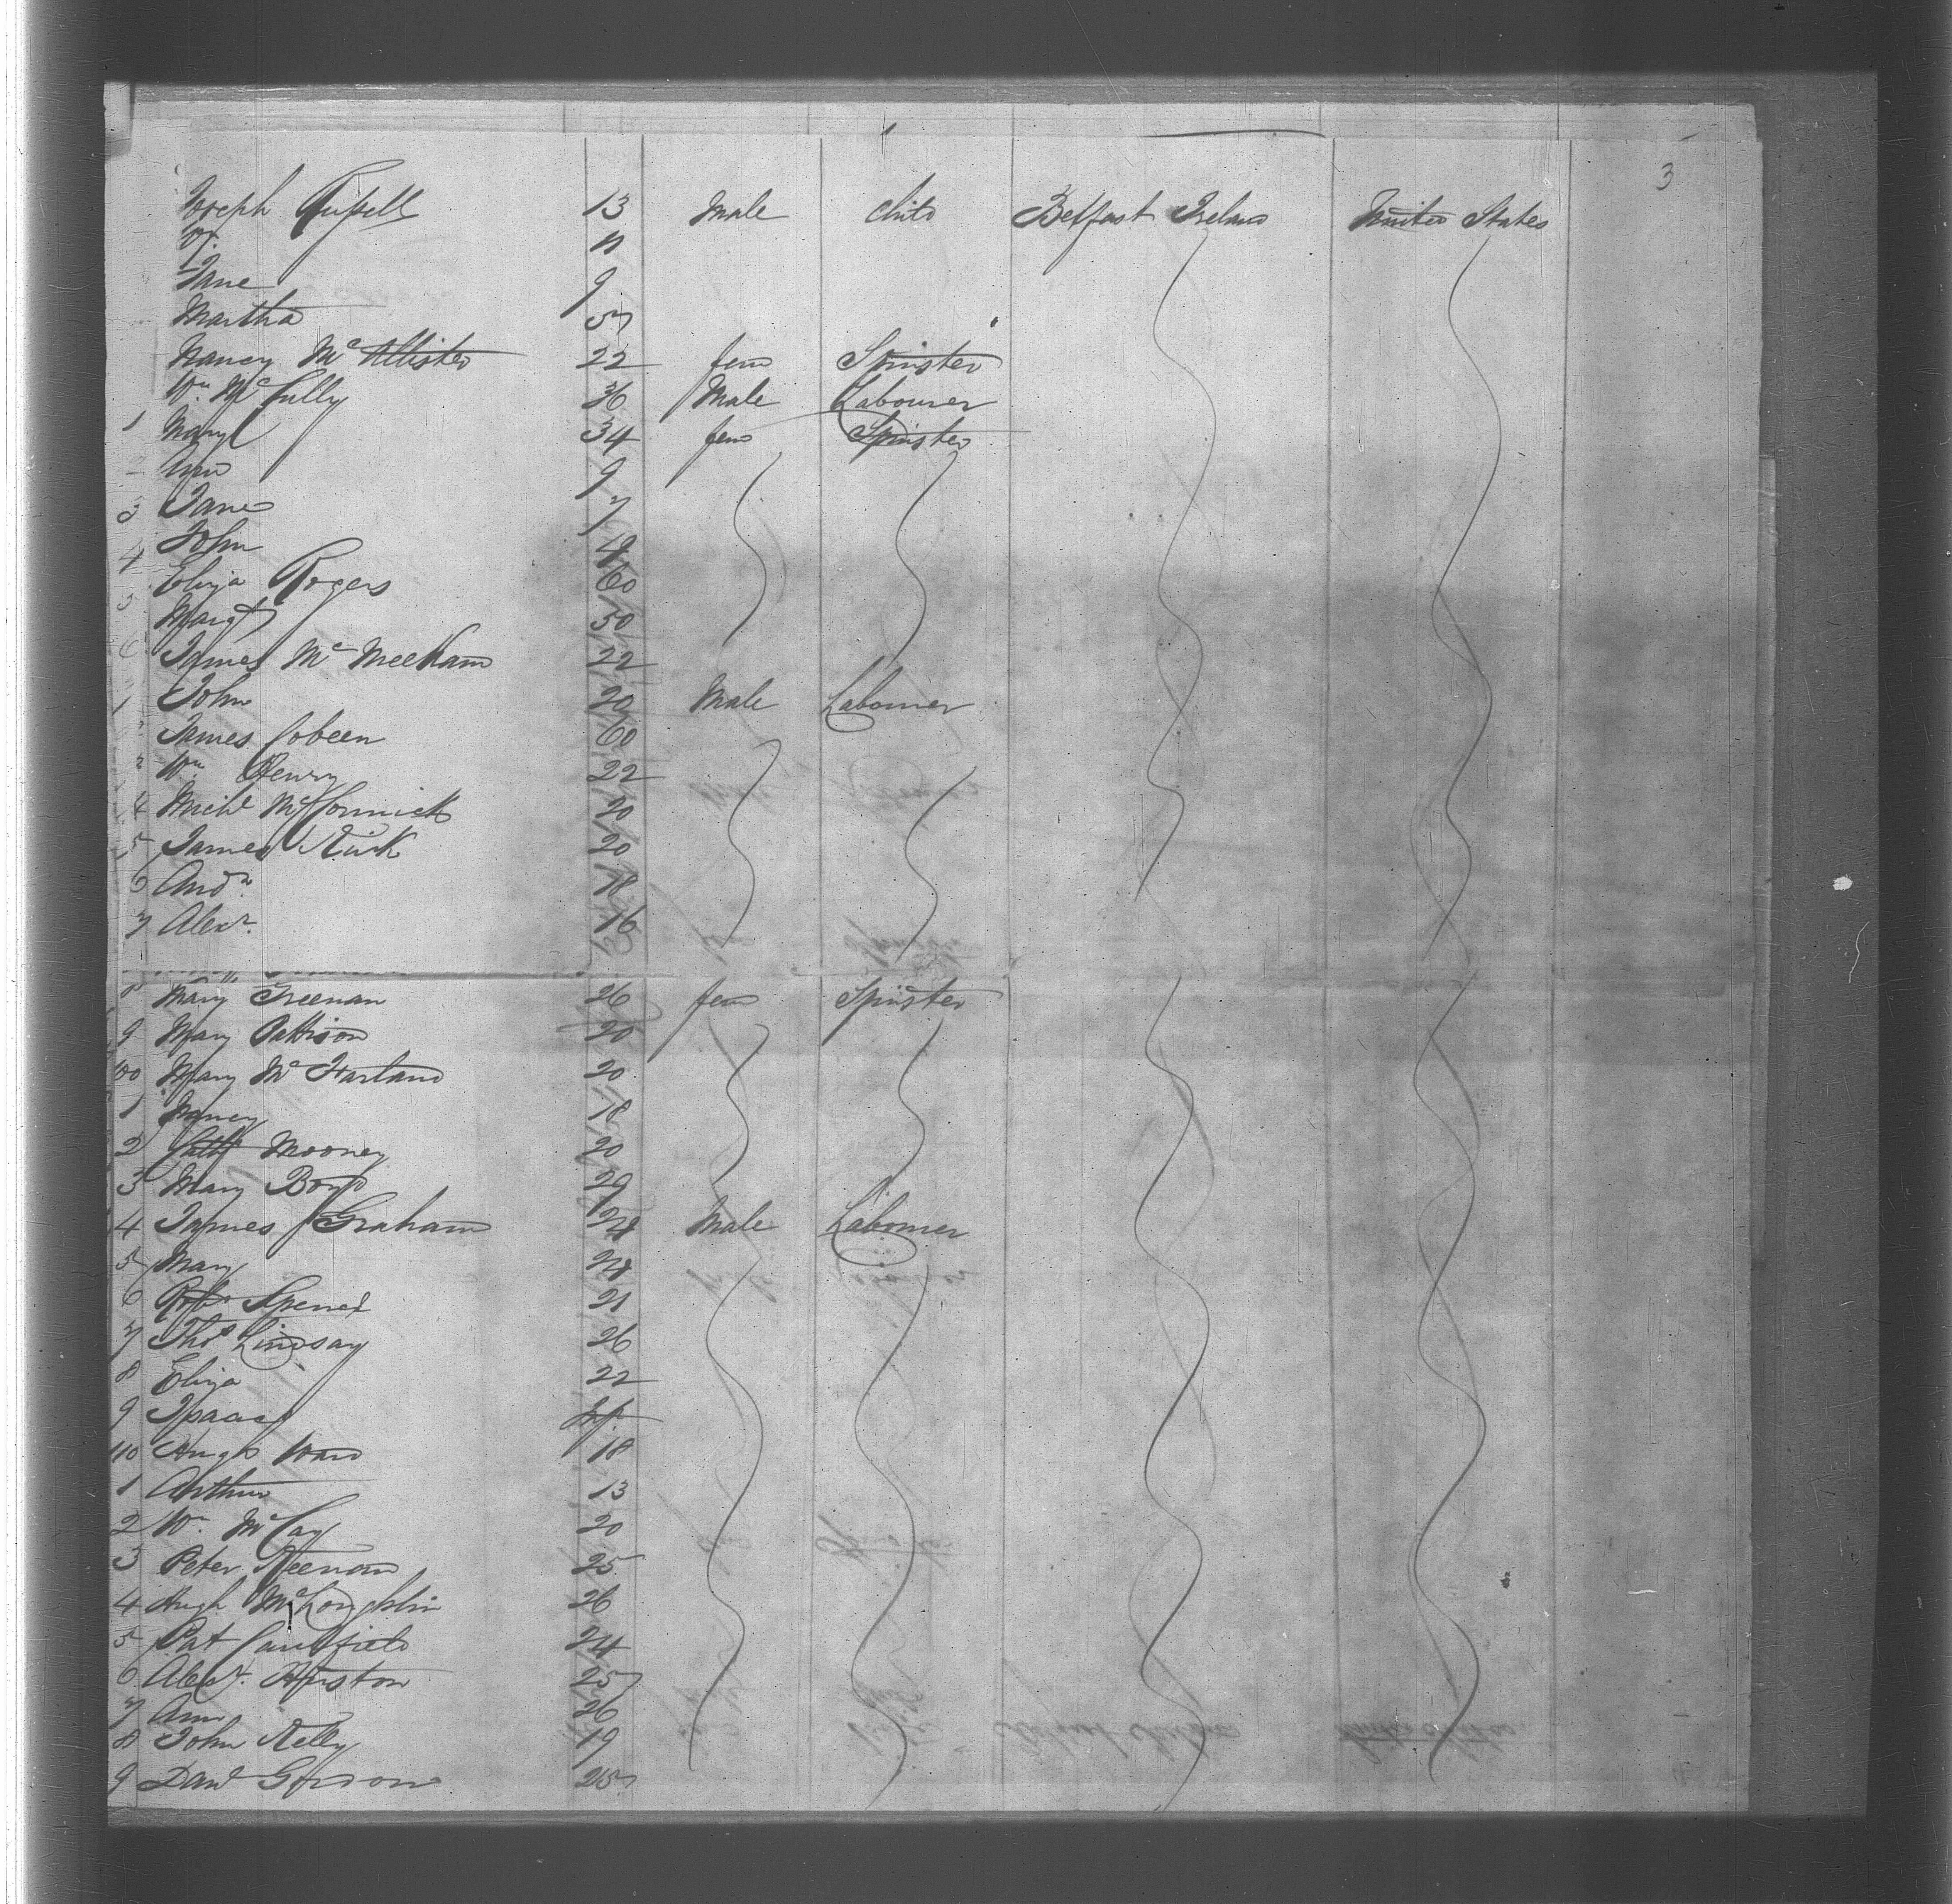 3
Joseph Russell 13 Male child Belfast Ireland United States
Wm 11
Jane 9
Martha 5
Nancy McAllister 22 fem Spinster
Wm McCully 36 Male Labourer
1 Mary 34 fem Spinster
Ann 9
3 Jane 7
4 John
5 Eliza Rogers 60
6 Margt 50
James McMeekam 22
1 John 20 Male Labourer
James Cobeen 60
Wm Henry 22
4 Michl McCormick 20
5 James Kirk 20
6 Andw 18
7 Alexr. 16
8 Mary Greenan 26 fem Spinster
9 Mary Pattison 20
100 Mary McFarland 20
1 Nancy 18
2 Cath Mooney 20
3 Mary Boyd 29
4 James Graham 24 Male Labourer
5 Mary 24
6 Robt 21
7 Thos Lindsay 26
8 Eliza 22
9 Isaac Inf
110 Hugh Ward 18
1 Arthur 13
2 Wm. McCay 20
3 Peter Keenan 25
4 Hugh McLoughlin 26
5 Pat Caulfield 24
6 Alexr. Huston 25
7 Ann 26
8 John Kelly 19
9 Davd Gordon 25